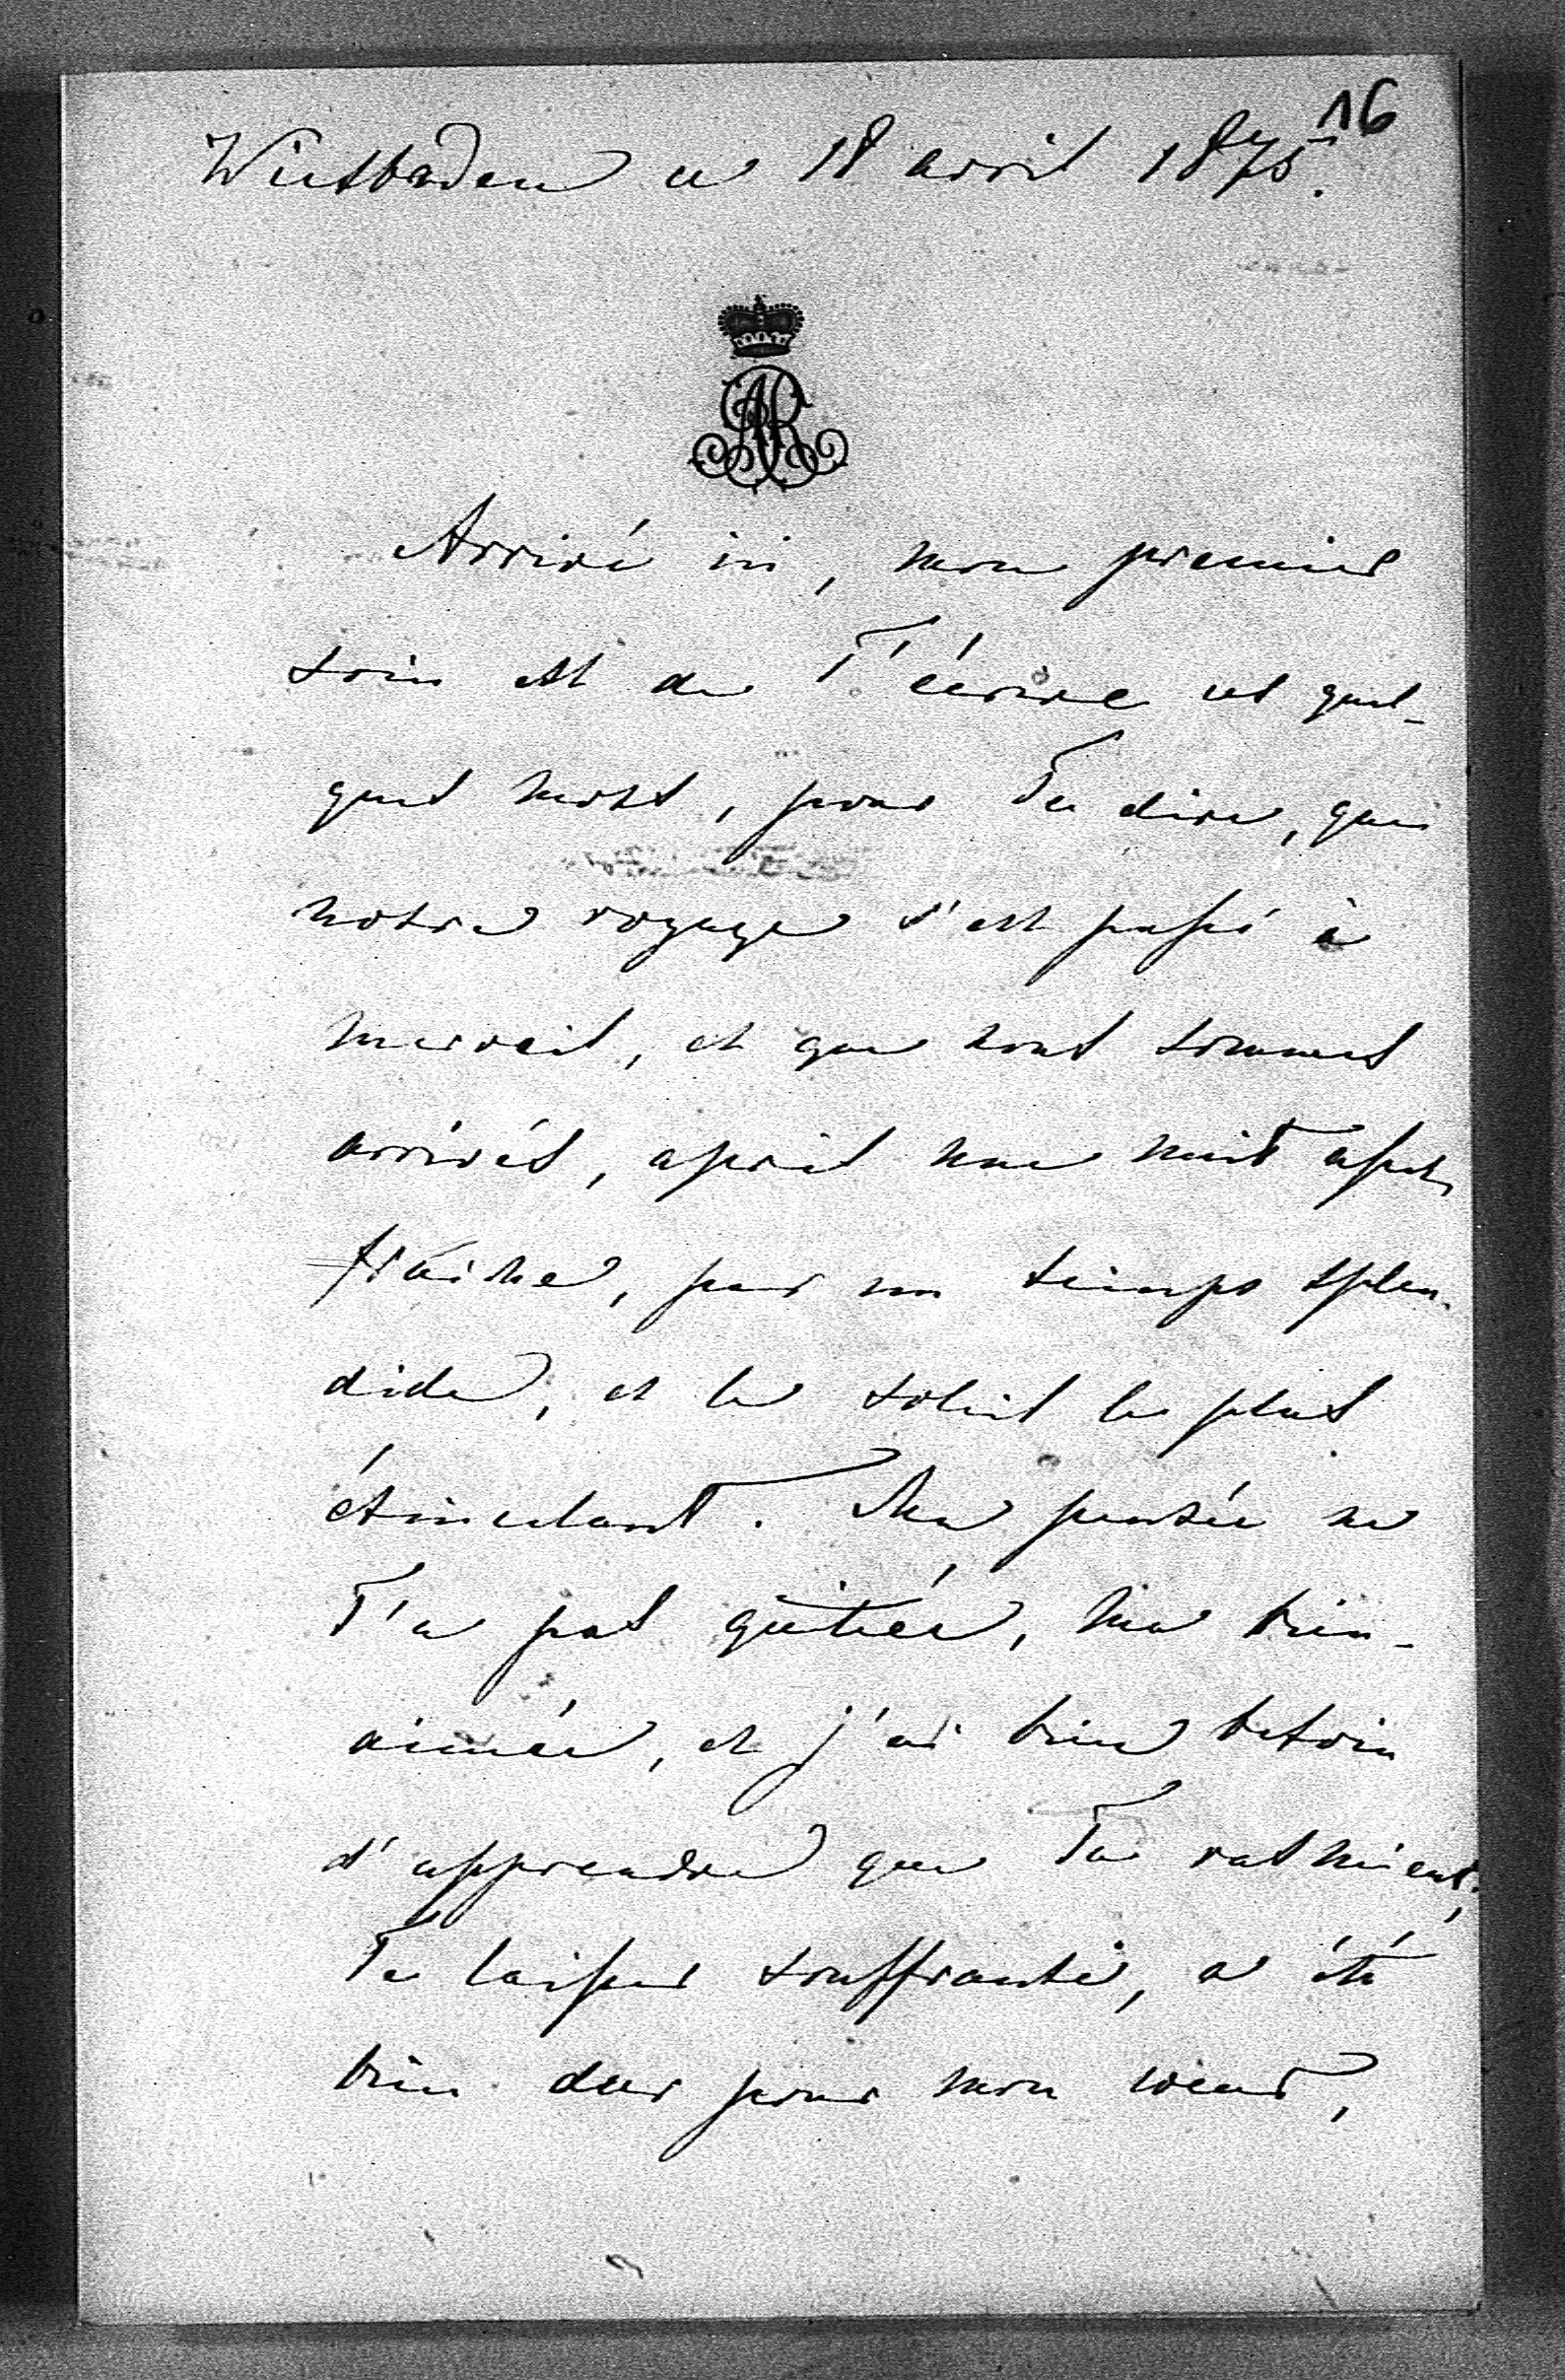 16
Wiesbaden ce 18 avril 1875.
AR
Arrivé ici, mon premier
soin est de T'écrire ces quel-
ques mots, pour Te dire, que
notre voyage s'est passé à
merveil, et que nous sommes
arrivés, après une nuit assez
fraîche, par un temps splen-
dide, et le soleil le plus
étincelant. Ma pensée ne
T'a pas quittée, ma bien-
aimée, et j'ai bien besoin
d'apprendre que Tu vas mieux;
Te laisser souffrante, a été
bien dur pour mon cœur,